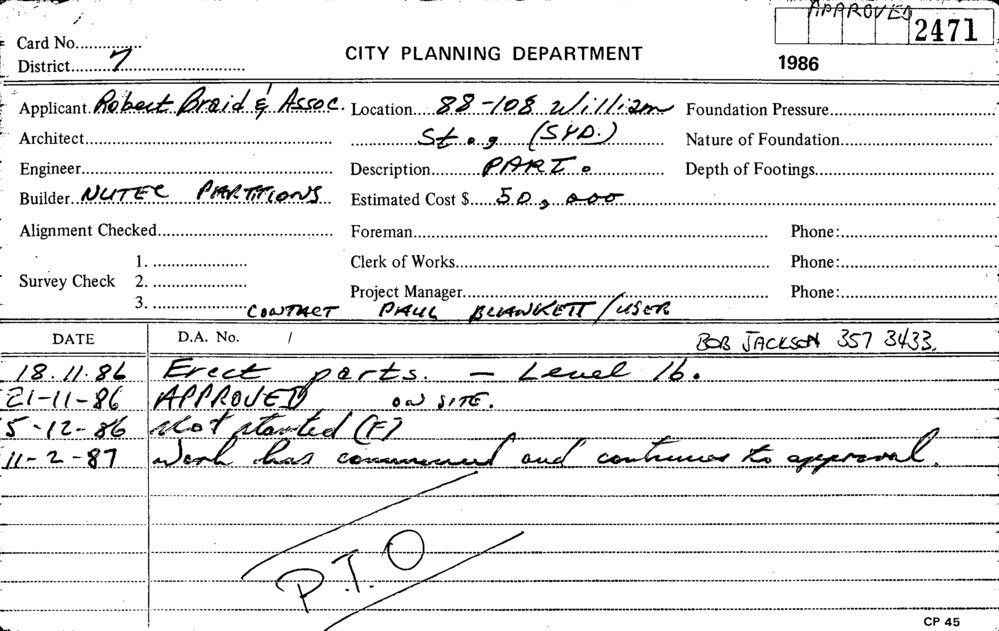 APPROVED
2471
Card No.
CITY PLANNING DEPARTMENT
District 7
1986
Applicant Robert Braid & Assoc. Location 88-108 William Foundation Pressure
Architect St., (SYD.) Nature of Foundation
Engineer Description PART. Depth of Footings
Builder NUTEC PARTITIONS Estimated Cost $ 50,000
Alignment Checked Foreman Phone:
1. Clerk of Works Phone:
Survey Check 2.
Project Manager Phone:
3. CONTACT PAUL BLANKETT/USER
DATE D.A. No. / BOB JACKSON 357 3433.
18.11.86 Erect parts. — Level 16.
21-11-86 APPROVED ON SITE.
5-12-86 Not started (F)
11-2-87 Work has commenced and continues to approval.
P.T.O
CP 45